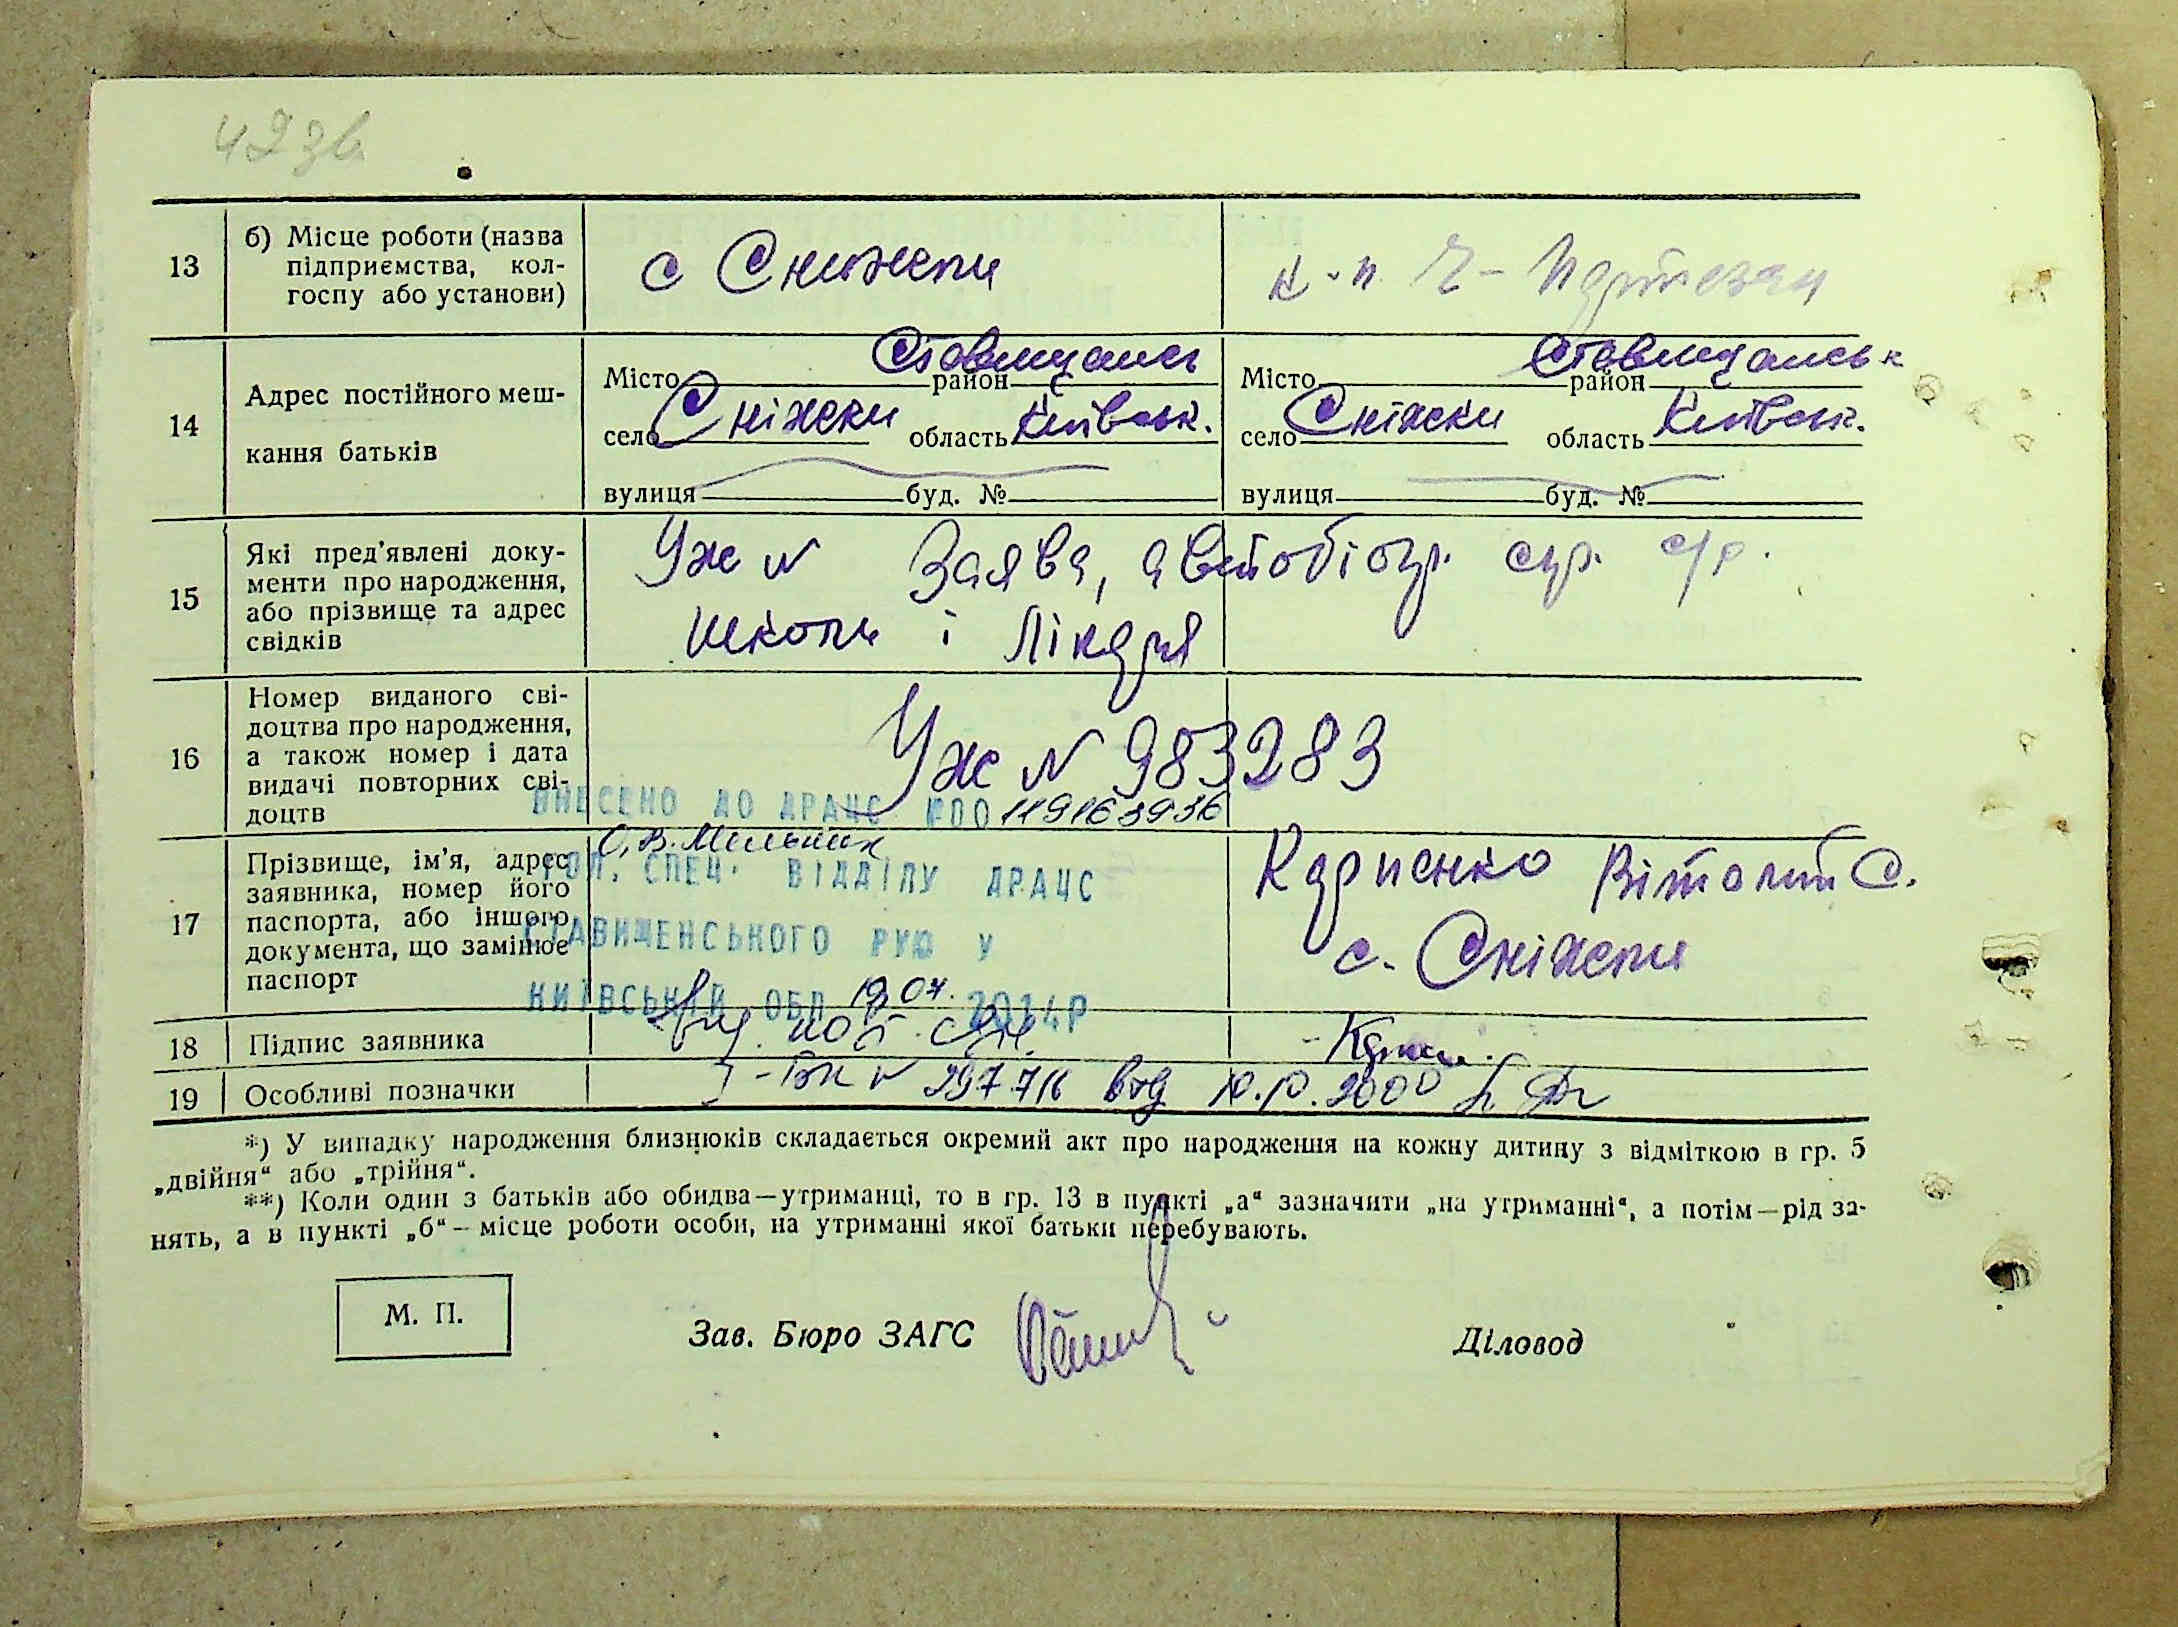 42 зв.
13
б) Місце роботи (назва
підприємства, кол-
госпу або установи)
с Снижки
к-п Ч-Партизан
14
Адрес постійного меш-
кання батьків
Місто район Ставищанськ
село Сніжки область Київськ.
вулиця буд. №
Місто район Ставищанськ
село Сніжки область Київськ.
вулиця буд. №
15
Які пред'явлені доку-
менти про народження,
або прізвище та адрес
свідків
Уж N Заява, автобіогр. с/р.
школи і лікаря
16
Номер виданого сві-
доцтва про народження,
а також номер і дата
видачі повторних сві-
доцтв
Уж N 983283
ВНЕСЕНО ДО ДРАЦС 119163936
17
Прізвище, ім'я, адрес
заявника, номер його
паспорта, або іншого
документа, що замінює
паспорт
О.В. Мельник
ГОЛ. СПЕЦ. ВІДДІЛУ ДРАЦС
СТАВИЩЕНСЬКОГО РУЮ У
КИЇВСЬКІЙ ОБЛ 07. 2014Р
Карпенко Віталій С.
с. Сніжки
18
Підпис заявника
19
Особливі позначки
N 297716 від 10.10.2000
*) У випадку народження близнюків складається окремий акт про народження на кожну дитину з відміткою в гр. 5
„двійня“ або „трійня“.
**) Коли один з батьків або обидва—утриманці, то в гр. 13 в пункті „а“ зазначити „на утриманні“, а потім—рід за-
нять, а в пункті „б“ — місце роботи особи, на утриманні якої батьки перебувають.
М. П.
Зав. Бюро ЗАГС
Діловод